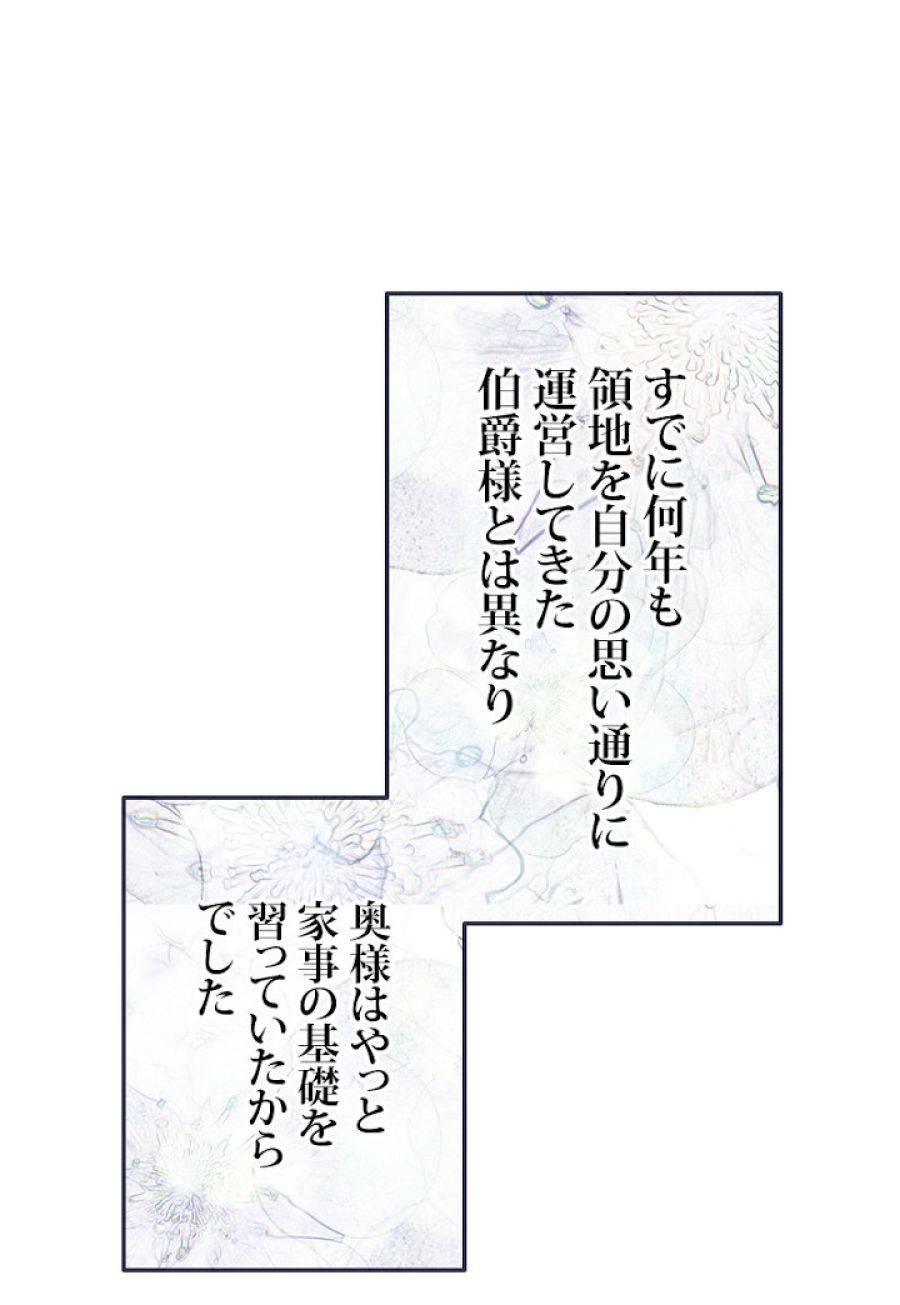 すでに何年も
領地を自分の思い通りに
運営してきた
伯爵様とは異なり
奥様はやっと
家事の基礎を
習っていたから
でした